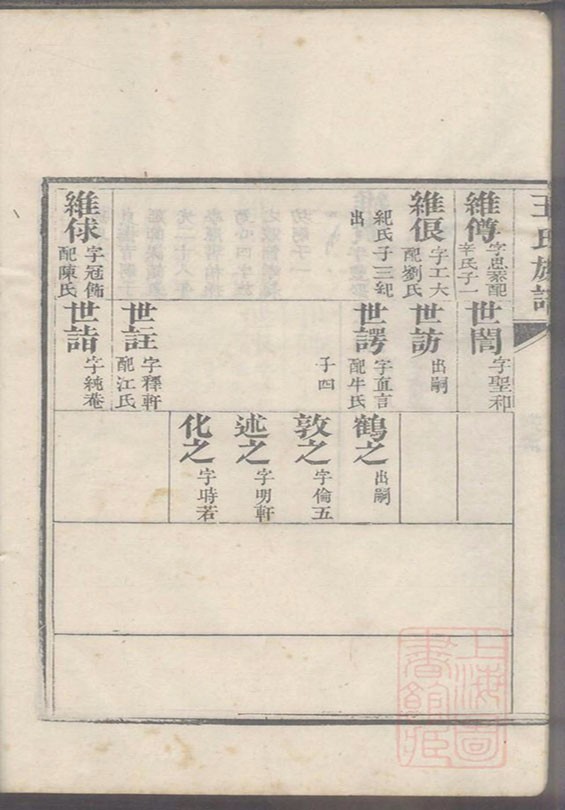 王氏族譜
維傅
辛氏子一
維佷
字工大
配劉氏
紀氏子三紀
出
維俅
字冠佛
配陳氏
世誾
字聖和
世訪
出嗣
世諤
字直言
配牛氏
子四
世註
字釋軒
配江氏
世詣
字純菴
鶴之
出嗣
敦之
字倫五
述之
字明軒
化之
字時若
上海圖
書館藏